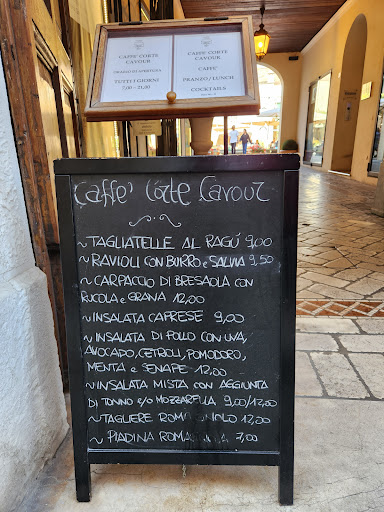 CAFFE' CORTE
CAVOUR
ORARIO DI APERTURA
TUTTI I GIORNI
7,00 - 21,00
CAFFE' CORTE
CAVOUR
CAFFE'
PRANZO / LUNCH
COCKTAILS
Caffe' Corte Cavour
~ TAGLIATELLE AL RAGÚ 9,00
~ RAVIOLI CON BURRO e SALVIA 9,50
~ CARPACCIO DI BRESAOLA CON
RUCOLA e GRANA 12,00
~ INSALATA CAPRESE 9,00
~ INSALATA DI POLLO CON UVA,
AVOCADO, CETRIOLI, POMODORO,
MENTA e SENAPE 12,00
~ INSALATA MISTA CON AGGIUNTA
DI TONNO e/o MOZZARELLA 9,00/12,00
~ TAGLIERE ROMAGNOLO 12,00
~ PIADINA ROMAGNOLA 7,00